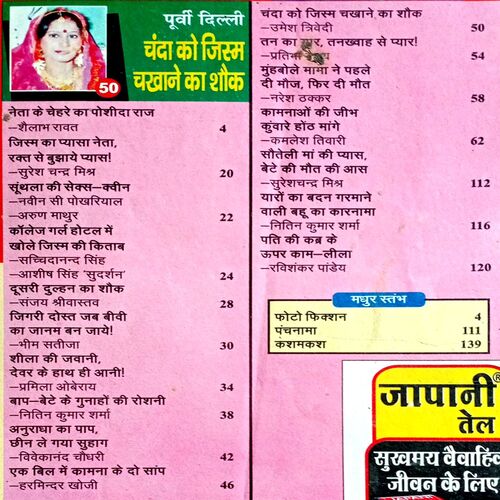 पूर्वी दिल्ली
चंदा को जिस्म
चखाने का शौक
50
नेता के चेहरे का पोशीदा राज
–शैलाभ रावत 4
जिस्म का प्यासा नेता,
रक्त से बुझाये प्यास!
–सुरेश चन्द्र मिश्र 20
सूंथला की सेक्स–क्वीन
–नवीन सी पोखरियाल
–अरुण माथुर 22
कॉलेज गर्ल होटल में
खोले जिस्म की किताब
–सच्चिदानन्द सिंह
–आशीष सिंह 'सुदर्शन' 24
दूसरी दुल्हन का शौक
–संजय श्रीवास्तव 28
जिगरी दोस्त जब बीवी
का जानम बन जाये!
–भीम सतीजा 30
शीला की जवानी,
देवर के हाथ ही आनी!
–प्रमिला ओबेराय 34
बाप–बेटे के गुनाहों की रोशनी
–नितिन कुमार शर्मा 38
अनुराधा का पाप,
छीन ले गया सुहाग
–विवेकानंद चौधरी 42
एक बिल में कामना के दो सांप
–हरमिन्दर खोजी 46
चंदा को जिस्म चखाने का शौक
–उमेश त्रिवेदी 50
तन का, तनख्वाह से प्यार!
54
मुंहबोले मामा ने पहले
दी मौज, फिर दी मौत
–नरेश ठक्कर 58
कामनाओं की जीभ
कुंवारे होंठ मांगे
–कमलेश तिवारी 62
सौतेली मां की प्यास,
बेटे की मौत की आस
–सुरेशचन्द्र मिश्र 112
यारों का बदन गरमाने
वाली बहू का कारनामा
–नितिन कुमार शर्मा 116
पति की कब्र के
ऊपर काम–लीला
–रविशंकर पांडेय 120
मधुर स्तंभ
फोटो फिक्शन 4
पंचनामा 111
कशमकश 139
जापानी®
तेल
सुखमय वैवाहिक
जीवन के लिए